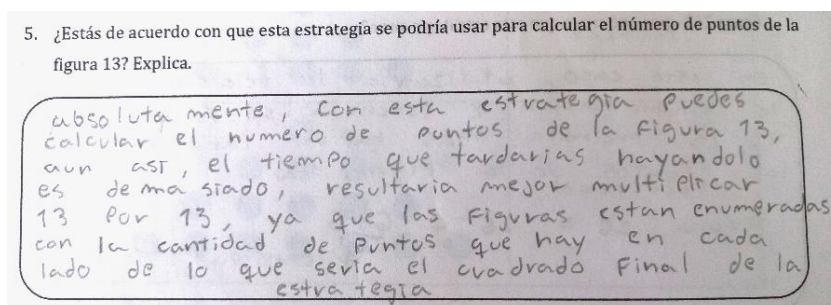 5. ¿Estás de acuerdo con que esta estrategia se podría usar para calcular el número de puntos de la
figura 13? Explica.
absolutamente, con esta estrategia puedes
calcular el numero de puntos de la figura 13,
aun asi, el tiempo que tardarias hayandolo
es demasiado, resultaria mejor multiplicar
13 por 13, ya que las figuras estan enumeradas
con la cantidad de puntos que hay en cada
lado de lo que seria el cuadrado final de la
estrategia